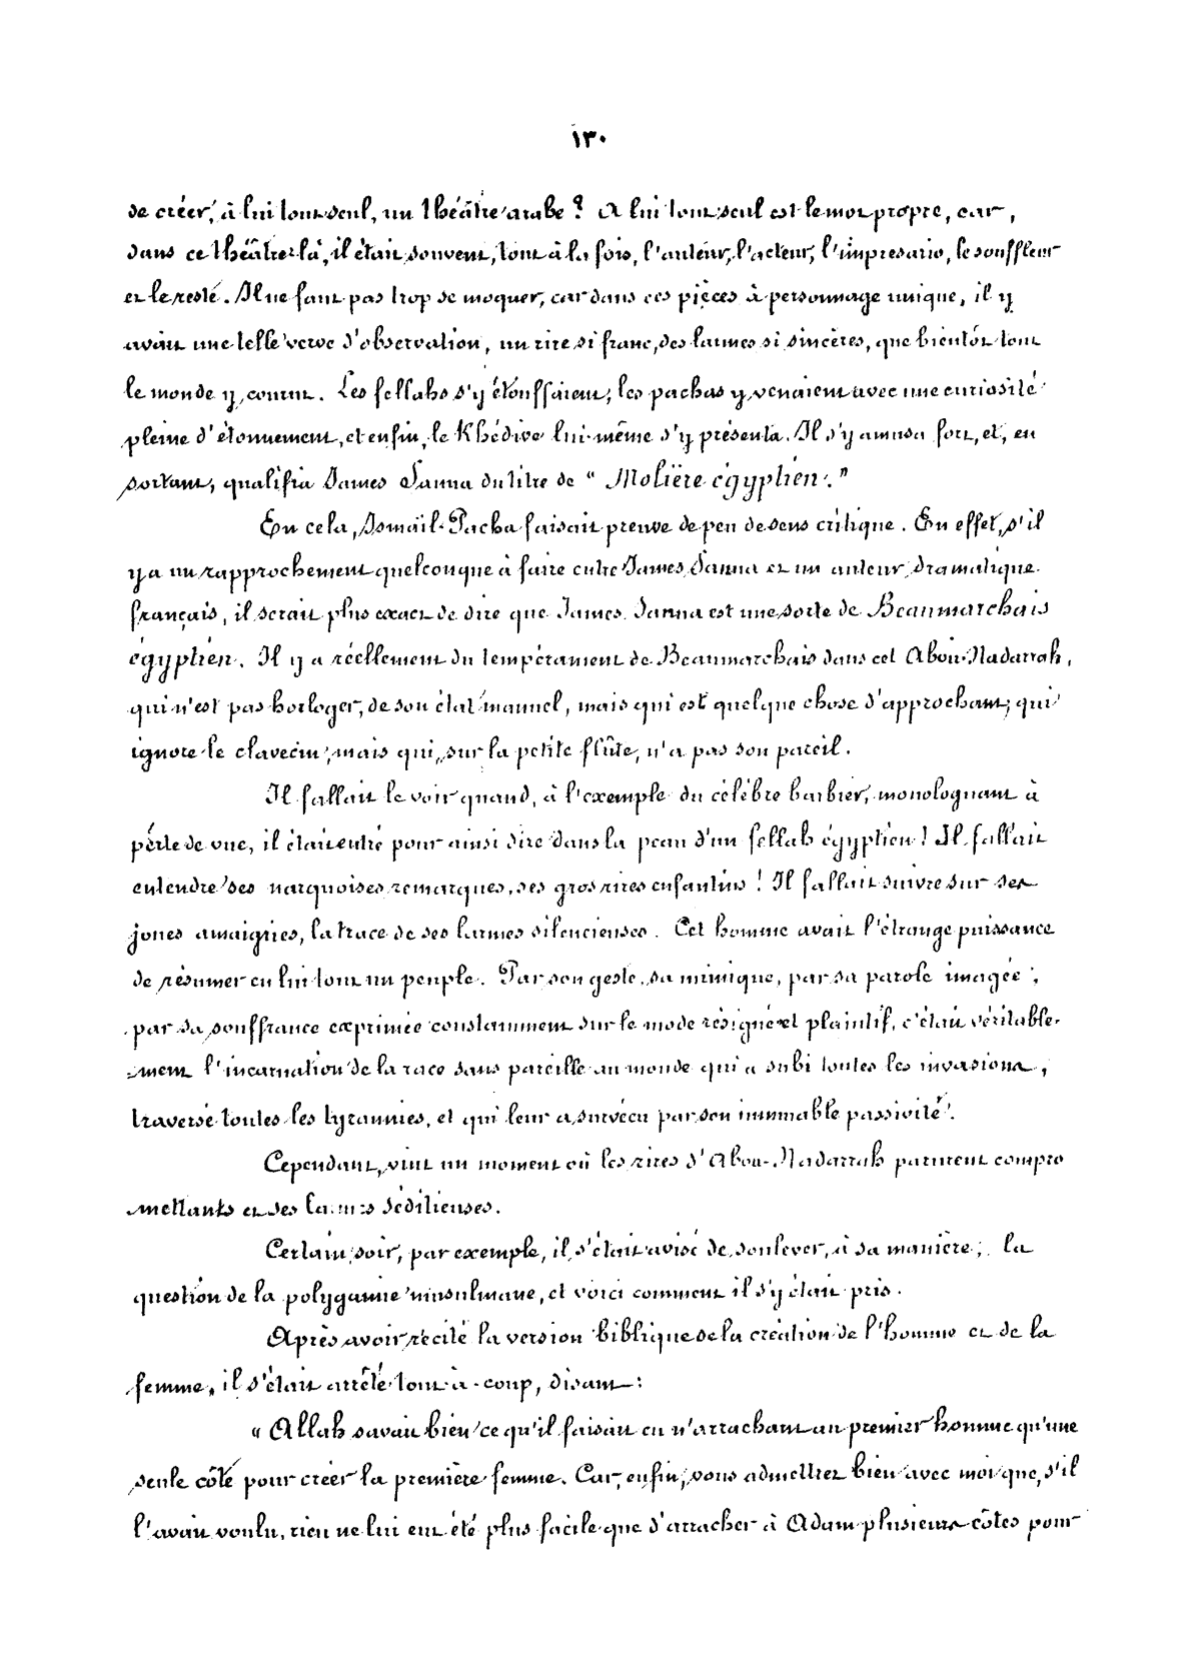 ١٣٠
de créer, à lui tout seul, un théâtre arabe ? A lui tout seul est le mot propre, car,
dans ce théâtre-là, il était souvent, tout à la fois, l'auteur, l'acteur, l'impresario, le souffleur
et le reste. Il ne faut pas trop se moquer, car dans ces pièces à personnage unique, il y
avait une telle verve d'observation, un rire si franc, des larmes si sincères, que bientôt tout
le monde y courut. Les fellahs s'y étouffaient; les pachas y venaient avec une curiosité
pleine d'étonnement, et enfin, le Khédive lui-même s'y présenta. Il s'y amusa fort, et, en
sortant, qualifia James Sanua du titre de " Molière égyptien. "
En cela, Ismaïl-Pacha faisait preuve de peu de sens critique. En effet, s'il
y a un rapprochement quelconque à faire entre James Sanua et un auteur dramatique
français, il serait plus exact de dire que James Sanua est une sorte de Beaumarchais
égyptien. Il y a réellement du tempérament de Beaumarchais dans cet Abou-Naddarrah,
qui n'est pas horloger, de son état manuel, mais qui est quelque chose d'approchant; qui
ignore le clavecin, mais qui, sur la petite flûte, n'a pas son pareil.
Il fallait le voir quand, à l'exemple du célèbre barbier, monologuant à
perte de vue, il était entré pour ainsi dire dans la peau d'un fellah égyptien ! Il fallait
entendre ses narquoises remarques, ses gros rires enfantins ! Il fallait suivre sur ses
joues amaigries, la trace de ses larmes silencieuses. Cet homme avait l'étrange puissance
de résumer en lui tout un peuple. Par son geste, sa mimique, par sa parole imagée ;
par sa souffrance exprimée constamment sur le mode résigné et plaintif, c'était véritable-
ment l'incarnation de la race sans pareille au monde qui a subi toutes les invasions,
traversé toutes les tyrannies, et qui leur a survécu par son immuable passivité.
Cependant, vint un moment où les rires d'Abou-Nadarrah parurent compro
mettants et ses larmes séditieuses.
Certain soir, par exemple, il s'était avisé de soulever, à sa manière, la
question de la polygamie musulmane, et voici comment il s'y était pris.
Après avoir récité la version biblique de la création de l'homme et de la
femme, il s'était arrêté tout-à-coup, disant :
« Allah savait bien ce qu'il faisait en n'arrachant au premier homme qu'une
seule côte pour créer la première femme. Car, enfin, vous admettrez bien avec moi que, s'il
l'avait voulu, rien ne lui eut été plus facile que d'arracher à Adam plusieurs côtes pour